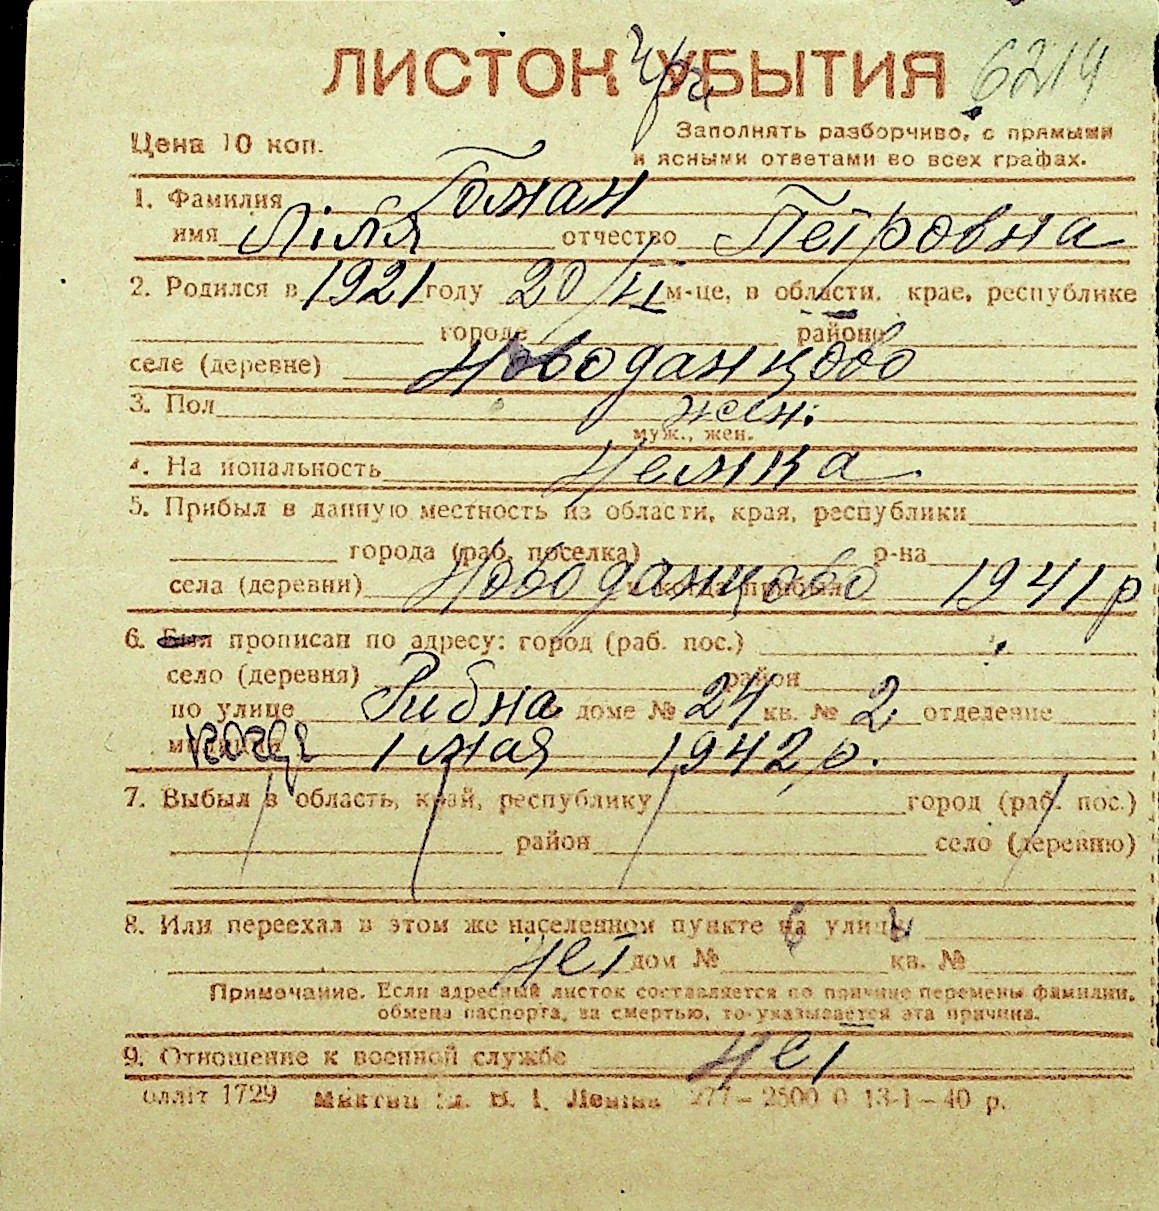 ЛИСТОК УБЫТИЯ 6214
при
Цена 10 коп. Заполнять разборчиво, с прямыми
и ясными ответами во всех графах.
1. Фамилия Гоман
имя Ліля отчество Петровна
2. Родился в 1921 году 20/VI м-це, в области, крае, республике
городе районе
селе (деревне) Новоданцово
3. Пол жен.
муж., жен.
4. На иональность Немка
5. Прибыл в данную местность из области, края, республики
города (раб. поселка) р-на
села (деревни) Новоданцово 1941 р
6. Был прописан по адресу: город (раб. пос.)
село (деревня) район
по улице Рибна доме № 24 кв. № 2 отделение
милиции когда 1 мая 1942 р.
7. Выбыл в область, край, республику город (раб. пос.)
район село (деревню)
8. Или переехал в этом же населенном пункте на улицу
нет дом № кв. №
Примечание. Если адресный листок составляется по причине перемены фамилии,
обмена паспорта, за смертью, то указывается эта причина.
9. Отношение к военной службе нет
олліт 1729 ім. В. І. Леніна 277 – 2500 0 13-1 – 40 р.